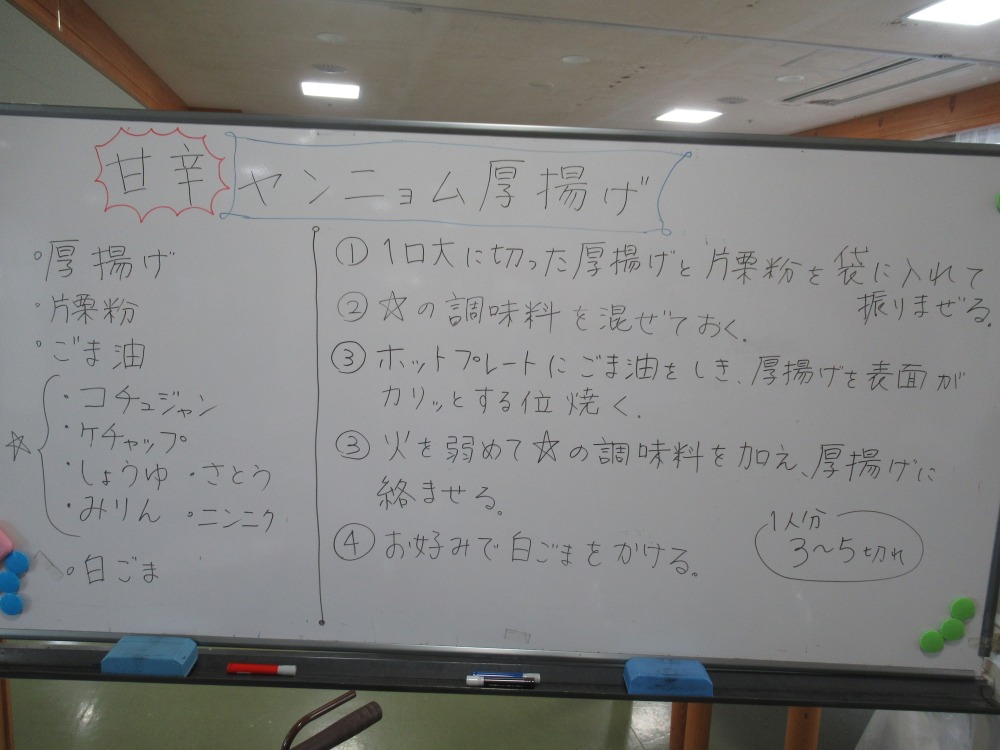 甘辛 ヤンニョム厚揚げ
・厚揚げ
・片栗粉
・ごま油
☆
・コチュジャン
・ケチャップ
・しょうゆ ・さとう
・みりん ・ニンニク
・白ごま
① 1口大に切った厚揚げと片栗粉を袋に入れて
振りまぜる。
② ☆の調味料を混ぜておく。
③ ホットプレートにごま油をしき、厚揚げを表面が
カリッとする位焼く。
③ 火を弱めて☆の調味料を加え、厚揚げに
絡ませる。
④ お好みで白ごまをかける。
1人分
3〜5切れ